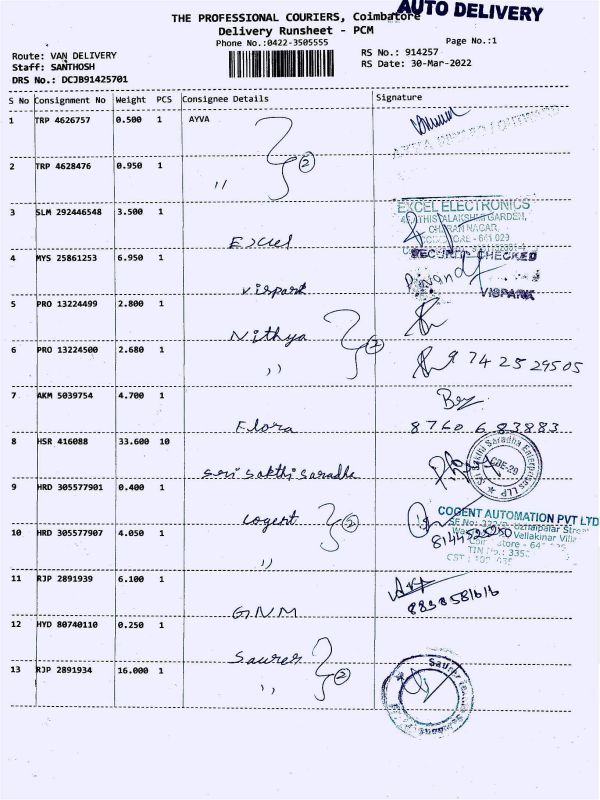 AUTO DELIVERY
THE PROFESSIONAL COURIERS, Coimbatore
Delivery Runsheet - PCM
Phone No.:0422-3505555
Page No.:1
Route: VAN DELIVERY
Staff: SANTHOSH
DRS No.: DCJB91425701
RS No.: 914257
RS Date: 30-Mar-2022
S No Consignment No Weight PCS Consignee Details Signature
1 TRP 4626757 0.500 1 AYVA
2 TRP 4628476 0.950 1 ,, 2
3 SLM 292446548 3.500 1 Excel
EXCEL ELECTRONICS
4 MYS 25861253 6.950 1 Vispark
SECURITY CHECKED
VISPARK
5 PRO 13224499 2.800 1 Nithya
6 PRO 13224500 2.680 1 ,, 2 9742529505
7 AKM 5039754 4.700 1 Flora 8760683883
8 HSR 416088 33.600 10 Sri Sakthi Saradha
Sri Sakthi Saradha Enterprises LLP
CBE-29
9 HRD 305577901 0.400 1 Cogent
COGENT AUTOMATION PVT LTD
10 HRD 305577907 4.050 1 ,, 2
Vellakinar
11 RJP 2891939 6.100 1 GNM
12 HYD 80740110 0.250 1 Saurer
13 RJP 2891934 16.000 1 ,, 2
Saurer